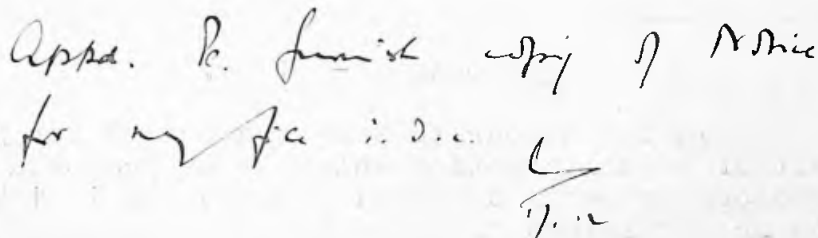 Appd. Pl. furnish copy of Notice
for my file i.d.c.
17.12